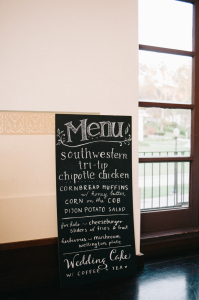 Menu
southwestern
tri-tip
chipotle chicken
CORNBREAD MUFFINS
w/ honey butter
CORN on the COB
DIJON POTATO SALAD
for kids — cheeseburger
sliders w/ fries & fruit
herbivores — mushroom
wellington plate
Wedding Cake
W/ COFFEE & TEA